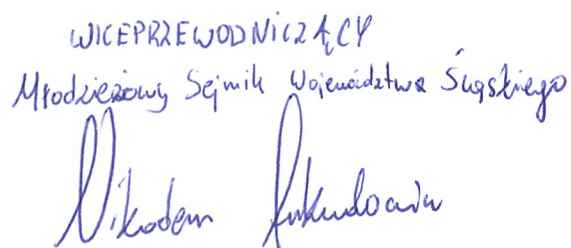 WICEPRZEWODNICZĄCY
Młodzieżowy Sejmik Województwa Śląskiego
Nikodem